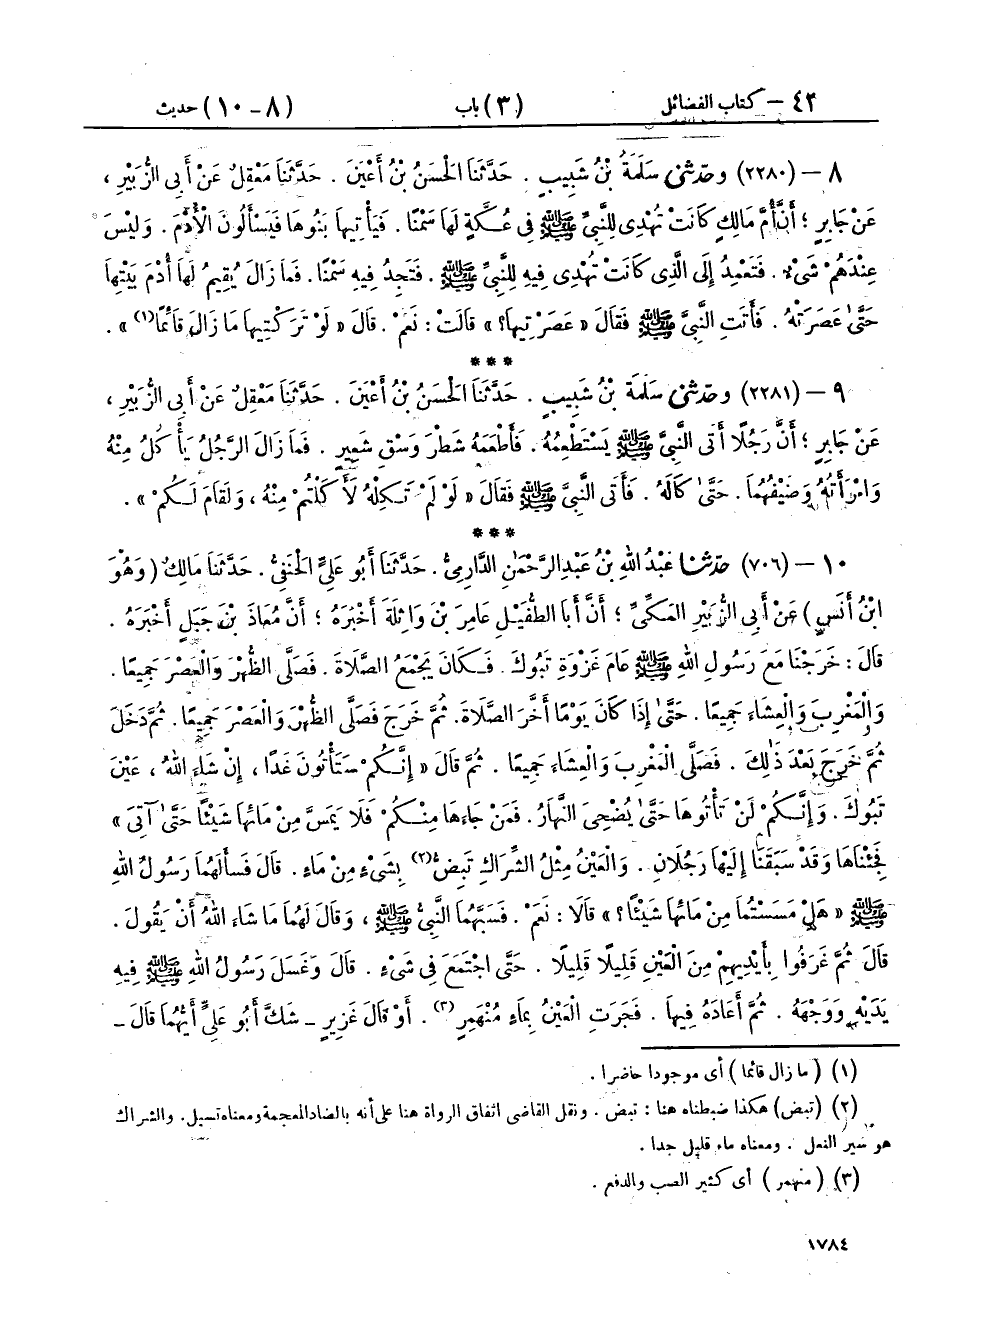 ٤٣ – كتاب الفضائل (٣) باب (٨ – ١٠) حديث
٨ – (٢٢٨٠) وحَدَّثَنِي سَلَمَةُ بْنُ شَبِيبٍ . حَدَّثَنَا الْحَسَنُ بْنُ أَعْيَنَ . حَدَّثَنَا مَعْقِلٌ عَنْ أَبِي الزُّبَيْرِ ،
عَنْ جَابِرٍ ؛ أَنَّ أُمَّ مَالِكٍ كَانَتْ تُهْدِى لِلنَّبِيِّ ﷺ فِي عُكَّةٍ لَهَا سَمْنًا . فَيَأْتِيهَا بَنُوهَا فَيَسْأَلُونَ الْأُدْمَ . وَلَيْسَ
عِنْدَهُمْ شَيْءٌ . فَتَعْمِدُ إِلَى الَّذِى كَانَتْ تُهْدِى فِيهِ لِلنَّبِيِّ ﷺ . فَتَجِدُ فِيهِ سَمْنًا . فَمَا زَالَ يُقِيمُ لَهَا أُدْمَ بَيْتِهَا
حَتَّىٰ عَصَرَتْهُ . فَأَتَتِ النَّبِيَّ ﷺ فَقَالَ « عَصَرْتِيهَا؟ » قَالَتْ : نَعَمْ . قَالَ « لَوْ تَرَكْتِيهَا مَا زَالَ قَائِمًا(١) » .
* * *
٩ – (٢٢٨١) وحَدَّثَنِي سَلَمَةُ بْنُ شَبِيبٍ . حَدَّثَنَا الْحَسَنُ بْنُ أَعْيَنَ . حَدَّثَنَا مَعْقِلٌ عَنْ أَبِي الزُّبَيْرِ ،
عَنْ جَابِرٍ ؛ أَنَّ رَجُلًا أَتَى النَّبِيَّ ﷺ يَسْتَطْعِمُهُ . فَأَطْعَمَهُ شَطْرَ وَسْقِ شَعِيرٍ . فَمَا زَالَ الرَّجُلُ يَأْكُلُ مِنْهُ
وَامْرَأَتُهُ وَضَيْفُهُمَا . حَتَّىٰ كَالَهُ . فَأَتَى النَّبِيَّ ﷺ فَقَالَ « لَوْ لَمْ تَكِلْهُ لَأَكَلْتُمْ مِنْهُ ، وَلَقَامَ لَكُمْ » .
* * *
١٠ – (٧٠٦) حَدَّثَنَا عَبْدُ اللهِ بْنُ عَبْدِ الرَّحْمَٰنِ الدَّارِمِيُّ . حَدَّثَنَا أَبُو عَلِيٍّ الْحَنَفِيُّ . حَدَّثَنَا مَالِكٌ (وَهُوَ
ابْنُ أَنَسٍ) عَنْ أَبِي الزُّبَيْرِ الْمَكِّيِّ ؛ أَنَّ أَبَا الطُّفَيْلِ عَامِرَ بْنَ وَاثِلَةَ أَخْبَرَهُ ؛ أَنَّ مُعَاذَ بْنَ جَبَلٍ أَخْبَرَهُ .
قَالَ : خَرَجْنَا مَعَ رَسُولِ اللهِ ﷺ عَامَ غَزْوَةِ تَبُوكَ . فَكَانَ يَجْمَعُ الصَّلَاةَ . فَصَلَّى الظُّهْرَ وَالْعَصْرَ جَمِيعًا .
وَالْمَغْرِبَ وَالْعِشَاءَ جَمِيعًا . حَتَّىٰ إِذَا كَانَ يَوْمًا أَخَّرَ الصَّلَاةَ . ثُمَّ خَرَجَ فَصَلَّى الظُّهْرَ وَالْعَصْرَ جَمِيعًا . ثُمَّ دَخَلَ
ثُمَّ خَرَجَ بَعْدَ ذَٰلِكَ . فَصَلَّى الْمَغْرِبَ وَالْعِشَاءَ جَمِيعًا . ثُمَّ قَالَ « إِنَّكُمْ سَتَأْتُونَ غَدًا ، إِنْ شَاءَ اللهُ ، عَيْنَ
تَبُوكَ . وَإِنَّكُمْ لَنْ تَأْتُوهَا حَتَّىٰ يُضْحِيَ النَّهَارُ . فَمَنْ جَاءَهَا مِنْكُمْ فَلَا يَمَسَّ مِنْ مَائِهَا شَيْئًا حَتَّىٰ آتِيَ »
فَجِئْنَاهَا وَقَدْ سَبَقَنَا إِلَيْهَا رَجُلَانِ . وَالْعَيْنُ مِثْلُ الشِّرَاكِ تَبِضُّ(٢) بِشَيْءٍ مِنْ مَاءٍ . قَالَ فَسَأَلَهُمَا رَسُولُ اللهِ
ﷺ « هَلْ مَسَسْتُمَا مِنْ مَائِهَا شَيْئًا؟ » قَالَا : نَعَمْ . فَسَبَّهُمَا النَّبِيُّ ﷺ ، وَقَالَ لَهُمَا مَا شَاءَ اللهُ أَنْ يَقُولَ .
قَالَ ثُمَّ غَرَفُوا بِأَيْدِيهِمْ مِنَ الْعَيْنِ قَلِيلًا قَلِيلًا . حَتَّى اجْتَمَعَ فِي شَيْءٍ . قَالَ وَغَسَلَ رَسُولُ اللهِ ﷺ فِيهِ
يَدَيْهِ وَوَجْهَهُ . ثُمَّ أَعَادَهُ فِيهَا . فَجَرَتِ الْعَيْنُ بِمَاءٍ مُنْهَمِرٍ(٣) . أَوْ قَالَ غَزِيرٍ – شَكَّ أَبُو عَلِيٍّ أَيُّهُمَا قَالَ –
(١) (ما زال قائما) أى موجودا حاضرا .
(٢) (تبض) هكذا ضبطناه هنا : تبض . ونقل القاضى اتفاق الرواة هنا على أنه بالضاد المعجمة ومعناه تسيل . والشراك
هو سير النعل . ومعناه ماء قليل جدا .
(٣) (منهمر) أى كثير الصب والدفع .
١٧٨٤